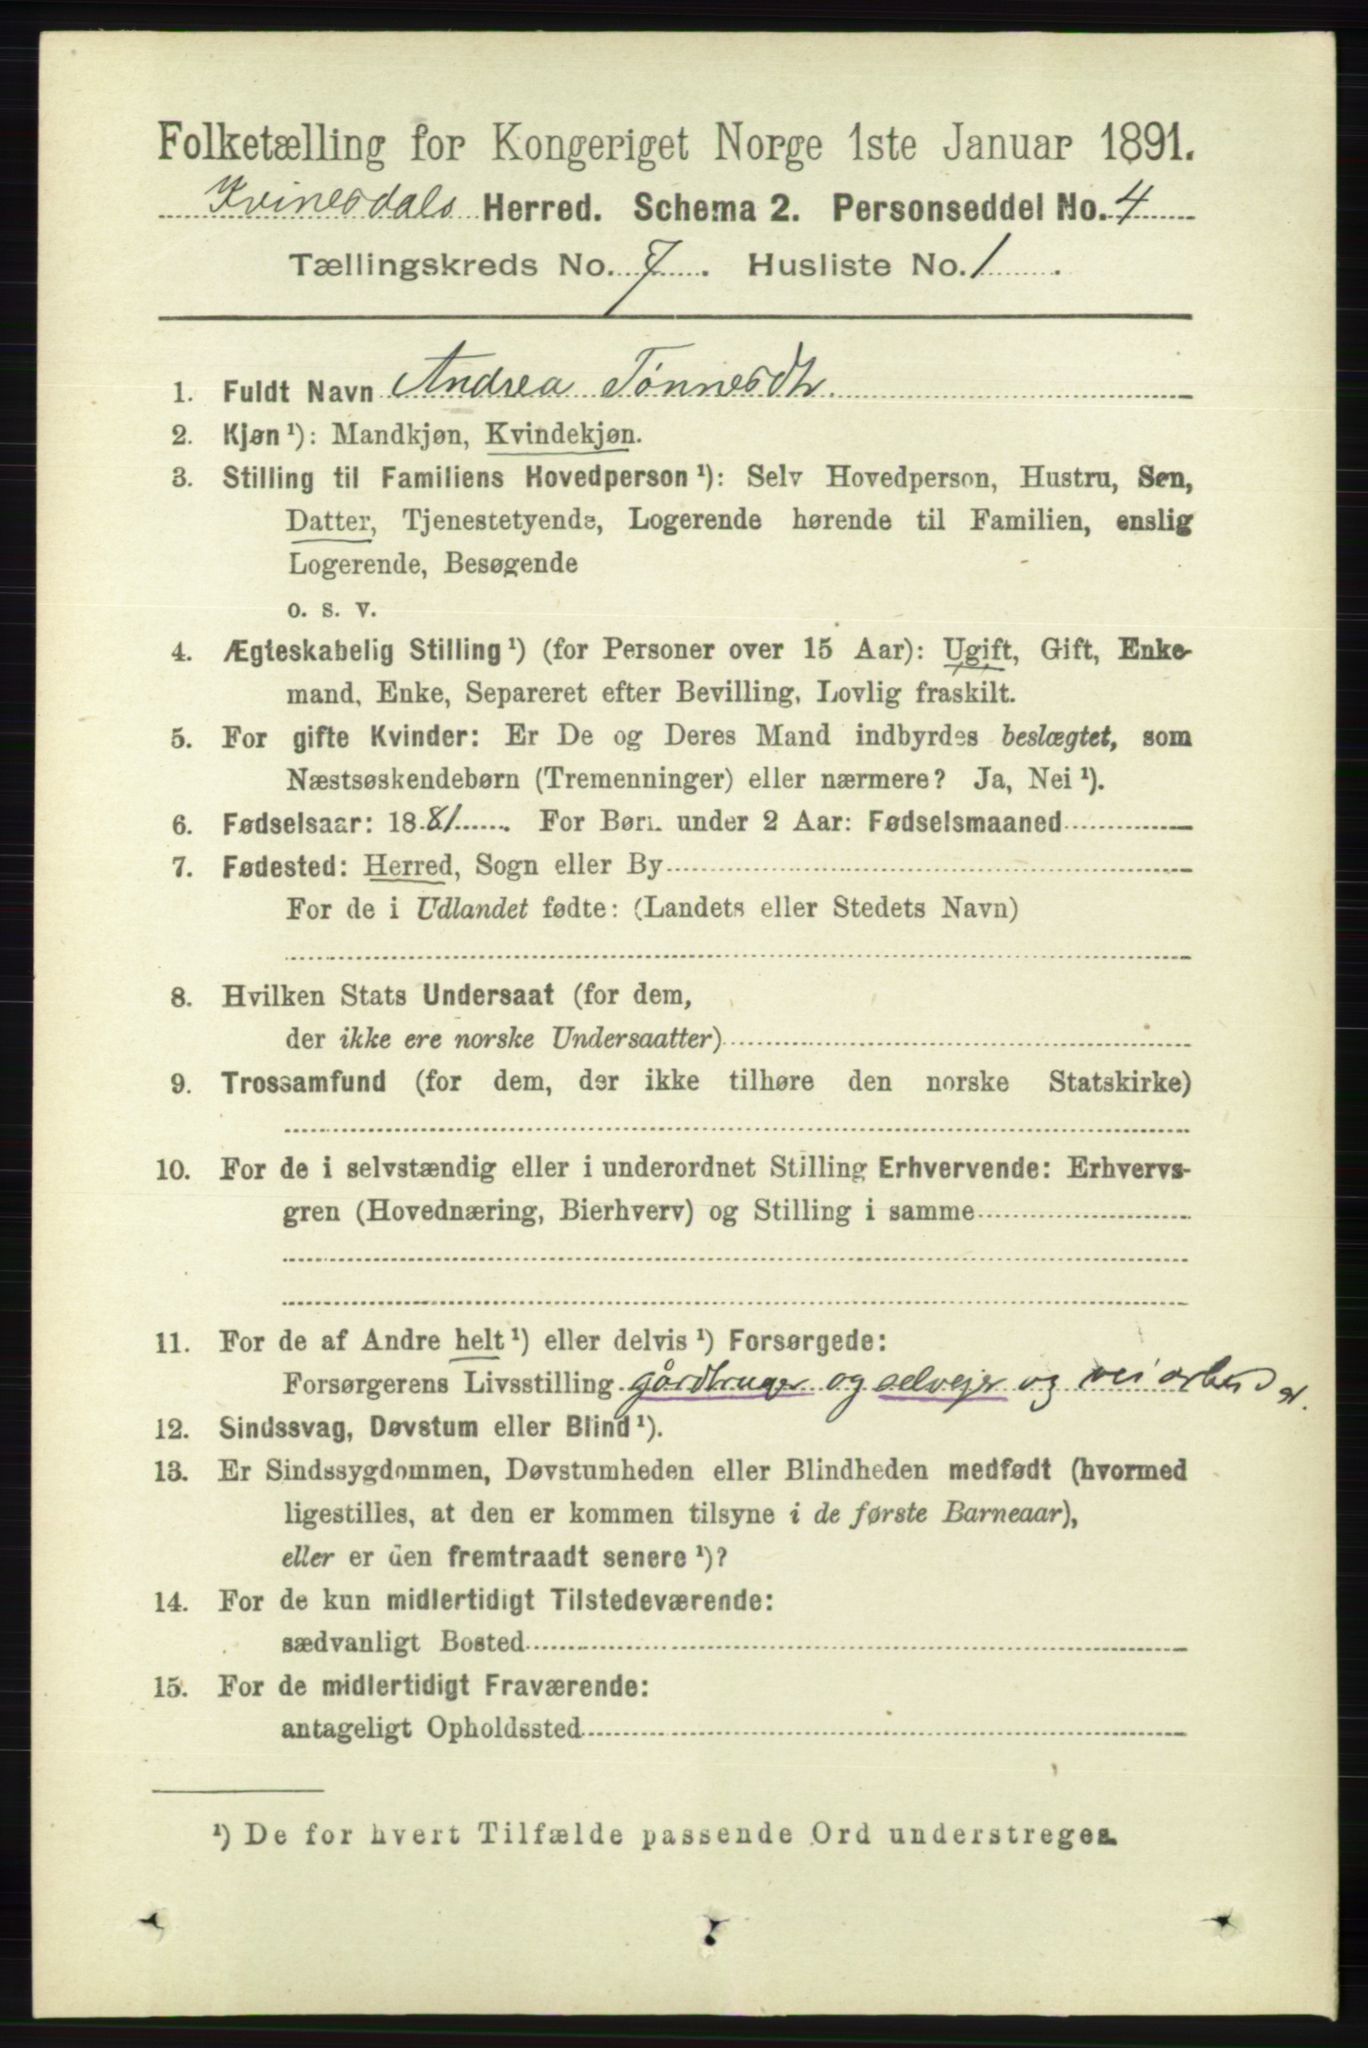 Folketælling for Kongeriget Norge 1ste Januar 1891.
Kvinesdals Herred. Schema 2. Personseddel No. 4
Tællingskreds No. 7. Husliste No. 1.
1. Fuldt Navn Andrea Tønnesdtr.
2. Kjøn ¹): Mandkjøn, Kvindekjøn.
3. Stilling til Familiens Hovedperson ¹): Selv Hovedperson, Hustru, Søn,
Datter, Tjenestetyende, Logerende hørende til Familien, enslig
Logerende, Besøgende
o. s. v.
4. Ægteskabelig Stilling ¹) (for Personer over 15 Aar): Ugift, Gift, Enke-
mand, Enke, Separeret efter Bevilling, Lovlig fraskilt.
5. For gifte Kvinder: Er De og Deres Mand indbyrdes beslægtet, som
Næstsøskendebørn (Tremenninger) eller nærmere? Ja, Nei ¹).
6. Fødselsaar: 1881. For Børn under 2 Aar: Fødselsmaaned
7. Fødested: Herred, Sogn eller By
For de i Udlandet fødte: (Landets eller Stedets Navn)
8. Hvilken Stats Undersaat (for dem,
der ikke ere norske Undersaatter)
9. Trossamfund (for dem, der ikke tilhøre den norske Statskirke)
10. For de i selvstændig eller i underordnet Stilling Erhvervende: Erhvervs-
gren (Hovednæring, Bierhverv) og Stilling i samme
11. For de af Andre helt ¹) eller delvis ¹) Forsørgede:
Forsørgerens Livsstilling gårdbruger og selvejer og veiarbeider.
12. Sindssvag, Døvstum eller Blind ¹).
13. Er Sindssygdommen, Døvstumheden eller Blindheden medfødt (hvormed
ligestilles, at den er kommen tilsyne i de første Barneaar),
eller er den fremtraadt senere ¹)?
14. For de kun midlertidigt Tilstedeværende:
sædvanligt Bosted
15. For de midlertidigt Fraværende:
antageligt Opholdssted
¹) De for hvert Tilfælde passende Ord understreges.